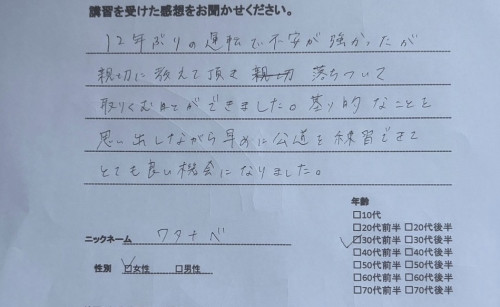 講習を受けた感想をお聞かせください。
12年ぶりの運転で不安が強かったが
親切に教えて頂き 落ちついて
取りくむ事ができました。基り的なことを
思い出しながら早めに公道を練習できて
とても良い機会になりました。
年齢
□10代
□20代前半 □20代後半
ニックネーム ワタナベ
☑30代前半 □30代後半
□40代前半 □40代後半
□50代前半 □50代後半
性別 ☑女性 □男性
□60代前半 □60代後半
□70代前半 □70代後半